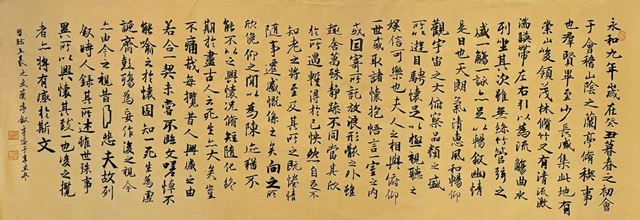 永和九年歲在癸丑暮春之初會
于會稽山陰之蘭亭脩稧事
也群賢畢至少長咸集此地有
崇山峻領茂林脩竹又有清流激
湍暎帶左右引以為流觴曲水
列坐其次雖無絲竹管絃之
盛一觴一詠亦足以暢敘幽情
是日也天朗氣清惠風和暢仰
觀宇宙之大俯察品類之盛
所以遊目騁懷足以極視聽之
娛信可樂也夫人之相與俯仰
一世或取諸懷抱悟言一室之內
或因寄所託放浪形骸之外雖
趣舍萬殊靜躁不同當其欣
於所遇暫得於己快然自足不
知老之將至及其所之既惓情
隨事遷感慨係之矣向之所
欣俛仰之間以為陳迹猶不
能不以之興懷況脩短隨化終
期於盡古人云死生亦大矣豈
不痛哉每攬昔人興感之由
若合一契未嘗不臨文嗟悼不
能喻之於懷固知一死生為虛
誕齊彭殤為妄作後之視今
亦由今之視昔悲夫故列
敘時人錄其所述雖世殊事
異所以興懷其致一也後之攬
者亦將有感於斯文